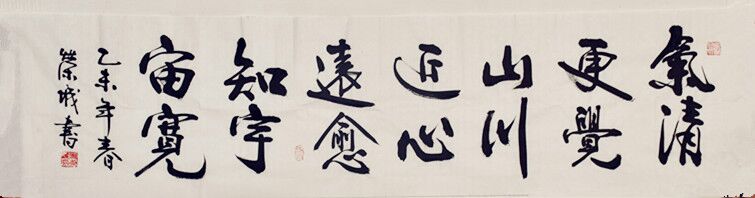 氣清
更覺
山川
近心
遠愈
知宇
宙寬
乙未年春
榮城書